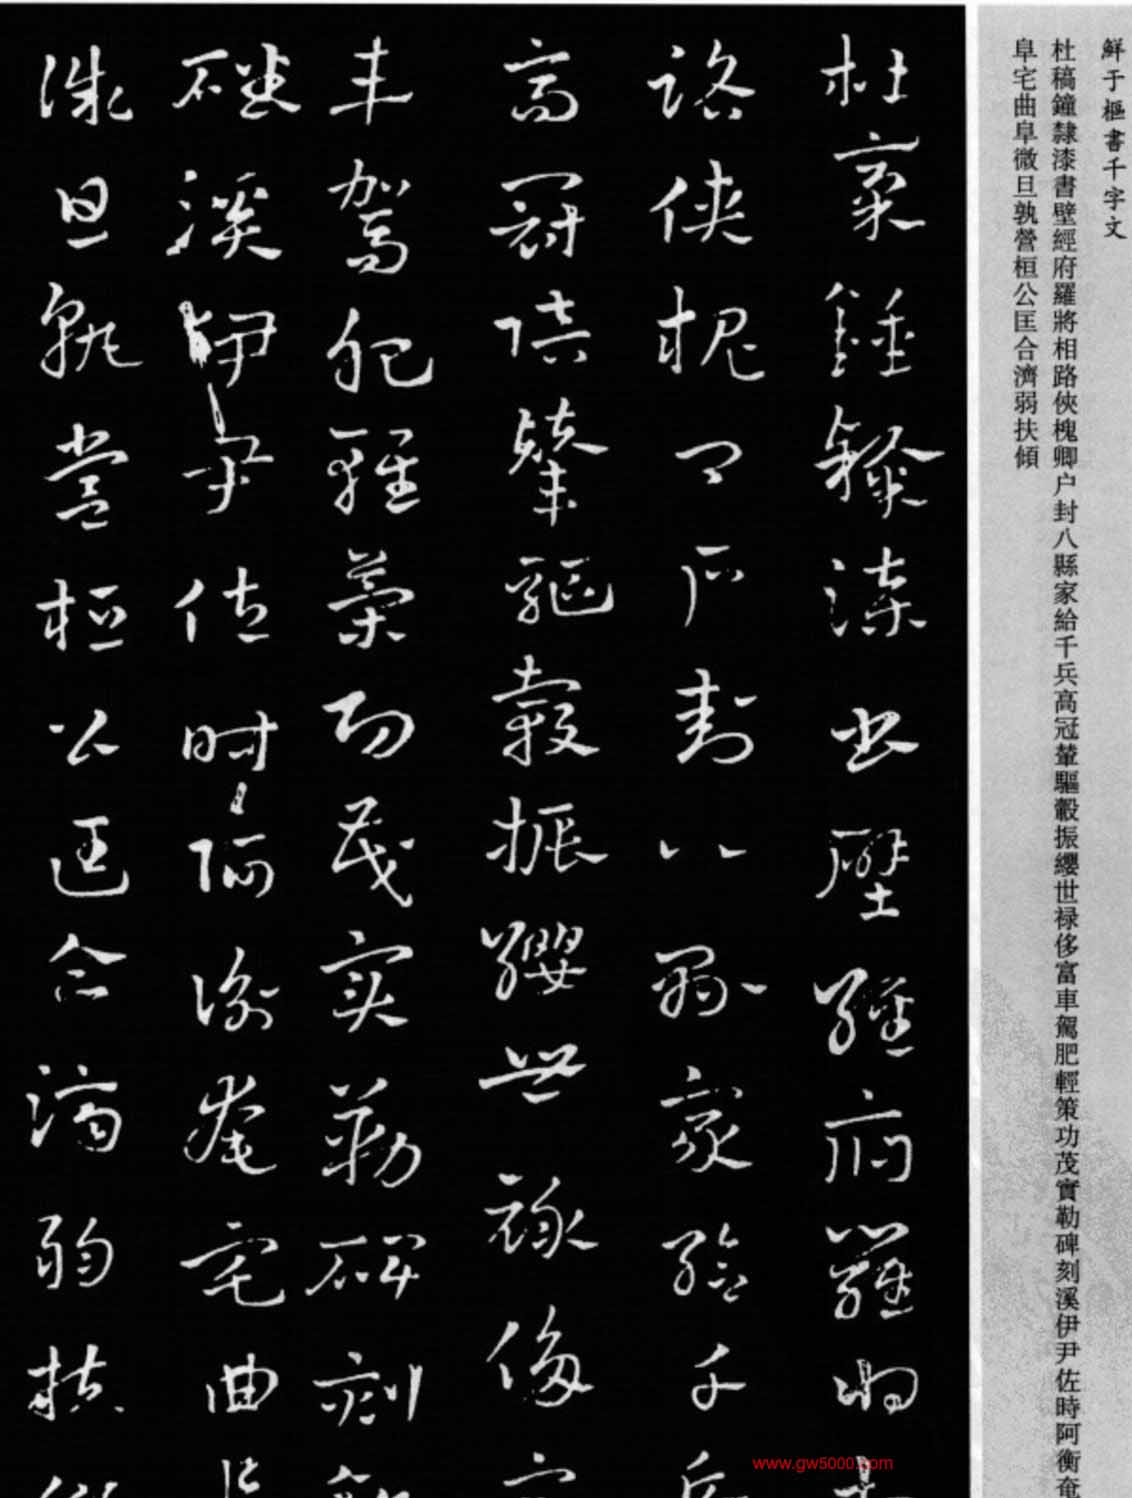 鮮于樞書千字文
杜稿鐘隸漆書壁經府羅將相路俠槐卿户封八縣家給千兵高冠輦驅轂振纓世禄侈富車駕肥輕策功茂實勒碑刻溪伊尹佐時阿衡奄
阜宅曲阜微旦孰營桓公匡合濟弱扶傾
杜稾鍾隸漆書壁經府羅將
路俠槐卿户封八縣家給千
高冠陪輦驅轂振纓世禄侈
車駕肥輕策功茂實勒碑刻
磻溪伊尹佐時阿衡奄宅曲
微旦孰營桓公匡合濟弱扶
www.gw5000.com